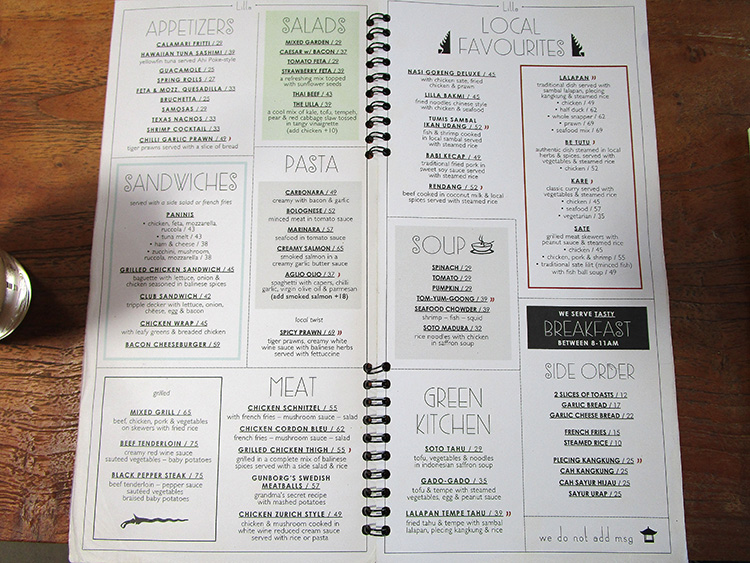 Lilla
APPETIZERS
CALAMARI FRITTI / 29
HAWAIIAN TUNA SASHIMI / 39
yellowfin tuna served Ahi Poke-style
GUACAMOLE / 25
SPRING ROLLS / 27
FETA & MOZZ. QUESADILLA / 33
BRUCHETTA / 25
SAMOSAS / 29
TEXAS NACHOS / 33
SHRIMP COCKTAIL / 33
CHILLI GARLIC PRAWN / 62
tiger prawns served with a slice of bread
SANDWICHES
served with a side salad or french fries
PANINIS
• chicken, feta, mozzarella,
ruccola / 43
• tuna melt / 43
• ham & cheese / 38
• zucchini, mushroom,
ruccola, mozzarella / 38
GRILLED CHICKEN SANDWICH / 45
baguette with lettuce, onion &
chicken seasoned in balinese spices
CLUB SANDWICH / 42
tripple decker with lettuce, onion,
cheese, egg & bacon
CHICKEN WRAP / 45
with leafy greens & breaded chicken
BACON CHEESEBURGER / 59
grilled
MIXED GRILL / 65
beef, chicken, pork & vegetables
on skewers with fried rice
BEEF TENDERLOIN / 75
creamy red wine sauce
sauteed vegetables – baby potatoes
BLACK PEPPER STEAK / 75
beef tenderloin – pepper sauce
sautéed vegetables
braised baby potatoes
SALADS
MIXED GARDEN / 29
CAESAR w/ BACON / 37
TOMATO FETA / 29
STRAWBERRY FETA / 39
a refreshing mix topped
with sunflower seeds
THAI BEEF / 43
THE LILLA / 39
a cool mix of kale, tofu, tempeh,
pear & red cabbage slaw tossed
in tangy vinaigrette
(add chicken +10)
PASTA
CARBONARA / 49
creamy with bacon & garlic
BOLOGNESE / 52
minced meat in tomato sauce
MARINARA / 57
seafood in tomato sauce
CREAMY SALMON / 65
smoked salmon in a
creamy garlic butter sauce
AGLIO OLIO / 37
spaghetti with capers, chilli
garlic, virgin olive oil & parmesan
(add smoked salmon +18)
local twist
SPICY PRAWN / 69
tiger prawns, creamy white
wine sauce with balinese herbs
served with fettuccine
MEAT
CHICKEN SCHNITZEL / 55
with french fries – mushroom sauce – salad
CHICKEN CORDON BLEU / 62
french fries – mushroom sauce – salad
GRILLED CHICKEN THIGH / 55
grilled in a complete mix of balinese
spices served with a side salad & rice
GUNBORG'S SWEDISH
MEATBALLS / 57
grandma's secret recipe
with mashed potatoes
CHICKEN ZURICH STYLE / 49
chicken & mushroom cooked in
white wine reduced cream sauce
served with rice or pasta
Lilla
LOCAL
FAVOURITES
NASI GORENG DELUXE / 45
with chicken sate, fried
chicken & prawn
LILLA BAKMI / 45
fried noodles chinese style
with chicken & seafood
TUMIS SAMBAL
IKAN UDANG / 52
fish & shrimp cooked
in local rambal served
with steamed rice
BABI KECAP / 49
traditional fried pork in
sweet soy sauce served
with steamed rice
RENDANG / 52
beef cooked in coconut milk & local
spices served with steamed rice
LALAPAN
traditional dish served with
sambal lalapan, plecing
kangkung & steamed rice
• chicken / 49
• half duck / 62
• whole snapper / 62
• prawn / 69
• seafood mix / 69
BE TUTU
authentic dish steamed in local
herbs & spices, served with
vegetables & steamed rice
• chicken / 52
KARE
classic curry served with
vegetables & steamed rice
• chicken / 45
• seafood / 57
• vegetarian / 35
SATE
grilled meat skewers with
peanut sauce & steamed rice
• chicken / 45
• chicken, pork & shrimp / 55
• traditional sate lilit (minced fish)
with fish ball soup / 49
SOUP
SPINACH / 29
TOMATO / 29
PUMPKIN / 29
TOM-YUM-GOONG / 39
SEAFOOD CHOWDER / 39
shrimp – fish – squid
SOTO MADURA / 32
rice noodles with chicken
in saffron soup
WE SERVE TASTY
BREAKFAST
BETWEEN 8-11AM
GREEN
KITCHEN
SOTO TAHU / 29
tofu, vegetables & noodles
in indonesian saffron soup
GADO-GADO / 35
tofu & tempe with steamed
vegetables, egg & peanut sauce
LALAPAN TEMPE TAHU / 39
fried tahu & tempe with sambal
lalapan, plecing kangkung & rice
SIDE ORDER
2 SLICES OF TOASTS / 12
GARLIC BREAD / 17
GARLIC CHEESE BREAD / 22
FRENCH FRIES / 15
STEAMED RICE / 10
PLECING KANGKUNG / 25
CAH KANGKUNG / 25
CAH SAYUR HIJAU / 25
SAYUR URAP / 25
we do not add msg